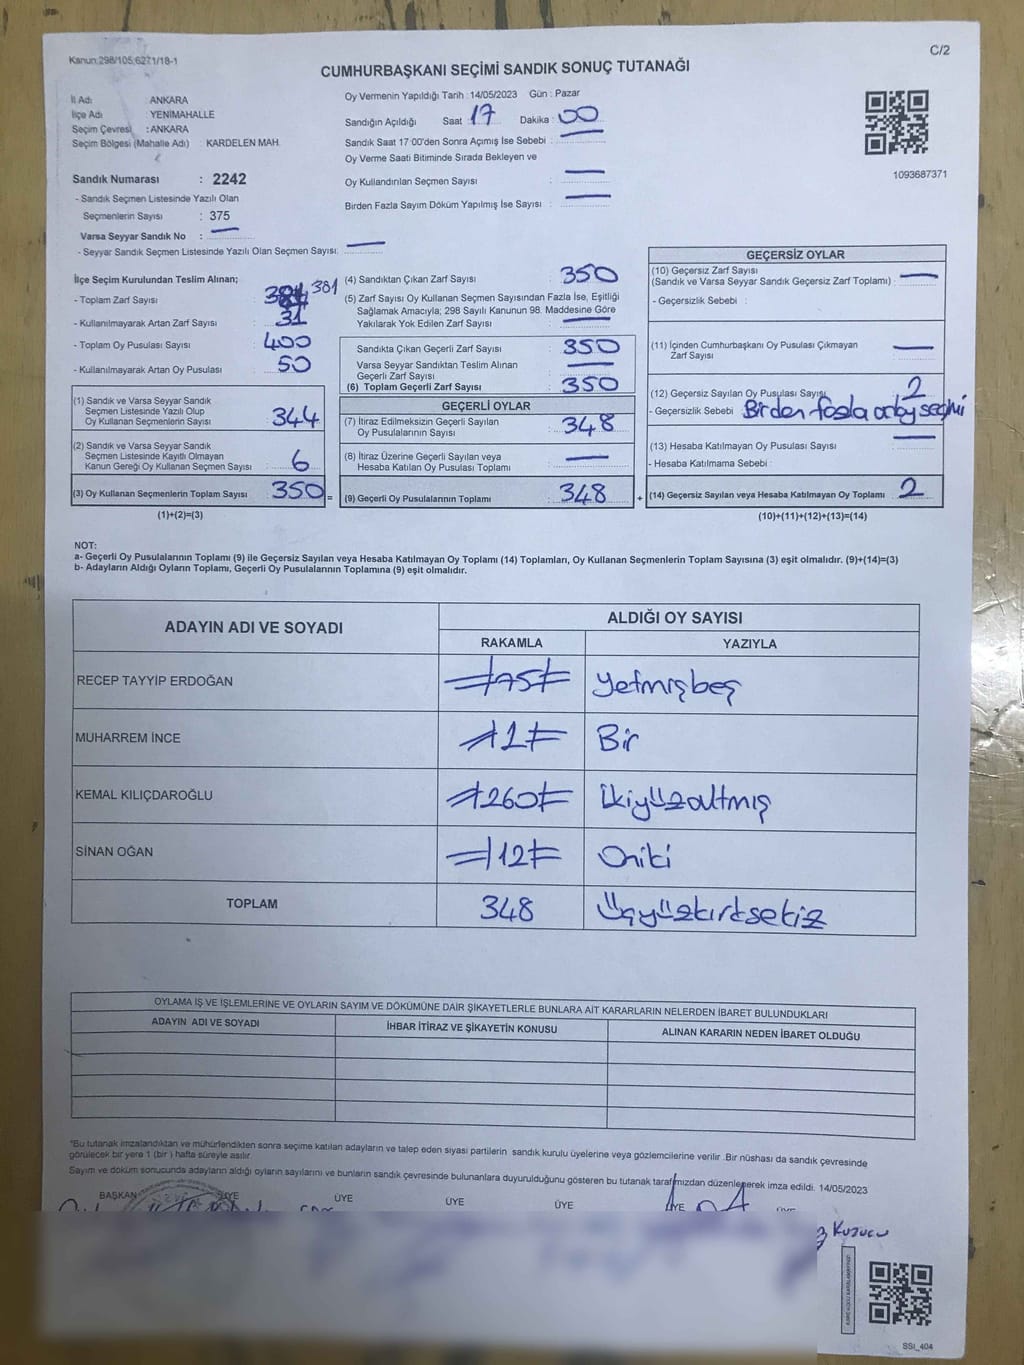 Kanun:298/105;6271/18-1
C/2
CUMHURBAŞKANI SEÇİMİ SANDIK SONUÇ TUTANAĞI
İl Adı : ANKARA
İlçe Adı : YENİMAHALLE
Seçim Çevresi : ANKARA
Seçim Bölgesi (Mahalle Adı) : KARDELEN MAH.
Sandık Numarası : 2242
- Sandık Seçmen Listesinde Yazılı Olan
Seçmenlerin Sayısı : 375
Varsa Seyyar Sandık No : —
- Seyyar Sandık Seçmen Listesinde Yazılı Olan Seçmen Sayısı: —
Oy Vermenin Yapıldığı Tarih : 14/05/2023 Gün : Pazar
Sandığın Açıldığı Saat 17 Dakika : 00
Sandık Saat 17:00'den Sonra Açılmış İse Sebebi : —
Oy Verme Saati Bitiminde Sırada Bekleyen ve
Oy Kullandırılan Seçmen Sayısı : —
Birden Fazla Sayım Döküm Yapılmış İse Sayısı : —
1093687371
İlçe Seçim Kurulundan Teslim Alınan;
- Toplam Zarf Sayısı : 381
- Kullanılmayarak Artan Zarf Sayısı : 31
- Toplam Oy Pusulası Sayısı : 400
- Kullanılmayarak Artan Oy Pusulası : 50
(1) Sandık ve Varsa Seyyar Sandık
Seçmen Listesinde Yazılı Olup
Oy Kullanan Seçmenlerin Sayısı : 344
(2) Sandık ve Varsa Seyyar Sandık
Seçmen Listesinde Kayıtlı Olmayan
Kanun Gereği Oy Kullanan Seçmen Sayısı : 6
(3) Oy Kullanan Seçmenlerin Toplam Sayısı : 350 =
(1)+(2)=(3)
(4) Sandıktan Çıkan Zarf Sayısı : 350
(5) Zarf Sayısı Oy Kullanan Seçmen Sayısından Fazla İse, Eşitliği
Sağlamak Amacıyla; 298 Sayılı Kanunun 98. Maddesine Göre
Yakılarak Yok Edilen Zarf Sayısı : —
Sandıkta Çıkan Geçerli Zarf Sayısı : 350
Varsa Seyyar Sandıktan Teslim Alınan
Geçerli Zarf Sayısı : —
(6) Toplam Geçerli Zarf Sayısı : 350
GEÇERLİ OYLAR
(7) İtiraz Edilmeksizin Geçerli Sayılan
Oy Pusulalarının Sayısı : 348
(8) İtiraz Üzerine Geçerli Sayılan veya
Hesaba Katılan Oy Pusulası Toplamı : —
(9) Geçerli Oy Pusulalarının Toplamı : 348 +
GEÇERSİZ OYLAR
(10) Geçersiz Zarf Sayısı
(Sandık ve Varsa Seyyar Sandık Geçersiz Zarf Toplamı) : —
- Geçersizlik Sebebi :
(11) İçinden Cumhurbaşkanı Oy Pusulası Çıkmayan
Zarf Sayısı : —
(12) Geçersiz Sayılan Oy Pusulası Sayısı : 2
- Geçersizlik Sebebi : Birden fazla aday seçimi
(13) Hesaba Katılmayan Oy Pusulası Sayısı : —
- Hesaba Katılmama Sebebi :
(14) Geçersiz Sayılan veya Hesaba Katılmayan Oy Toplamı : 2
(10)+(11)+(12)+(13)=(14)
NOT:
a- Geçerli Oy Pusulalarının Toplamı (9) ile Geçersiz Sayılan veya Hesaba Katılmayan Oy Toplamı (14) Toplamları, Oy Kullanan Seçmenlerin Toplam Sayısına (3) eşit olmalıdır. (9)+(14)=(3)
b- Adayların Aldığı Oyların Toplamı, Geçerli Oy Pusulalarının Toplamına (9) eşit olmalıdır.
ADAYIN ADI VE SOYADI ALDIĞI OY SAYISI
RAKAMLA YAZIYLA
RECEP TAYYİP ERDOĞAN =/75/= Yetmişbeş
MUHARREM İNCE =/1/= Bir
KEMAL KILIÇDAROĞLU =/260/= İkiyüzaltmış
SİNAN OĞAN =/12/= Oniki
TOPLAM 348 Üçyüzkırksekiz
OYLAMA İŞ VE İŞLEMLERİNE VE OYLARIN SAYIM VE DÖKÜMÜNE DAİR ŞİKAYETLERLE BUNLARA AİT KARARLARIN NELERDEN İBARET BULUNDUKLARI
ADAYIN ADI VE SOYADI İHBAR İTİRAZ VE ŞİKAYETİN KONUSU ALINAN KARARIN NEDEN İBARET OLDUĞU
*Bu tutanak imzalandıktan ve mühürlendikten sonra seçime katılan adayların ve talep eden siyasi partilerin sandık kurulu üyelerine veya gözlemcilerine verilir. Bir nüshası da sandık çevresinde
görülecek bir yere 1 (bir) hafta süreyle asılır.
Sayım ve döküm sonucunda adayların aldığı oyların sayılarını ve bunların sandık çevresinde bulunanlara duyurulduğunu gösteren bu tutanak tarafımızdan düzenlenerek imza edildi. 14/05/2023
BAŞKAN ÜYE ÜYE ÜYE ÜYE ÜYE ÜYE
Kuzucu
SSI_404